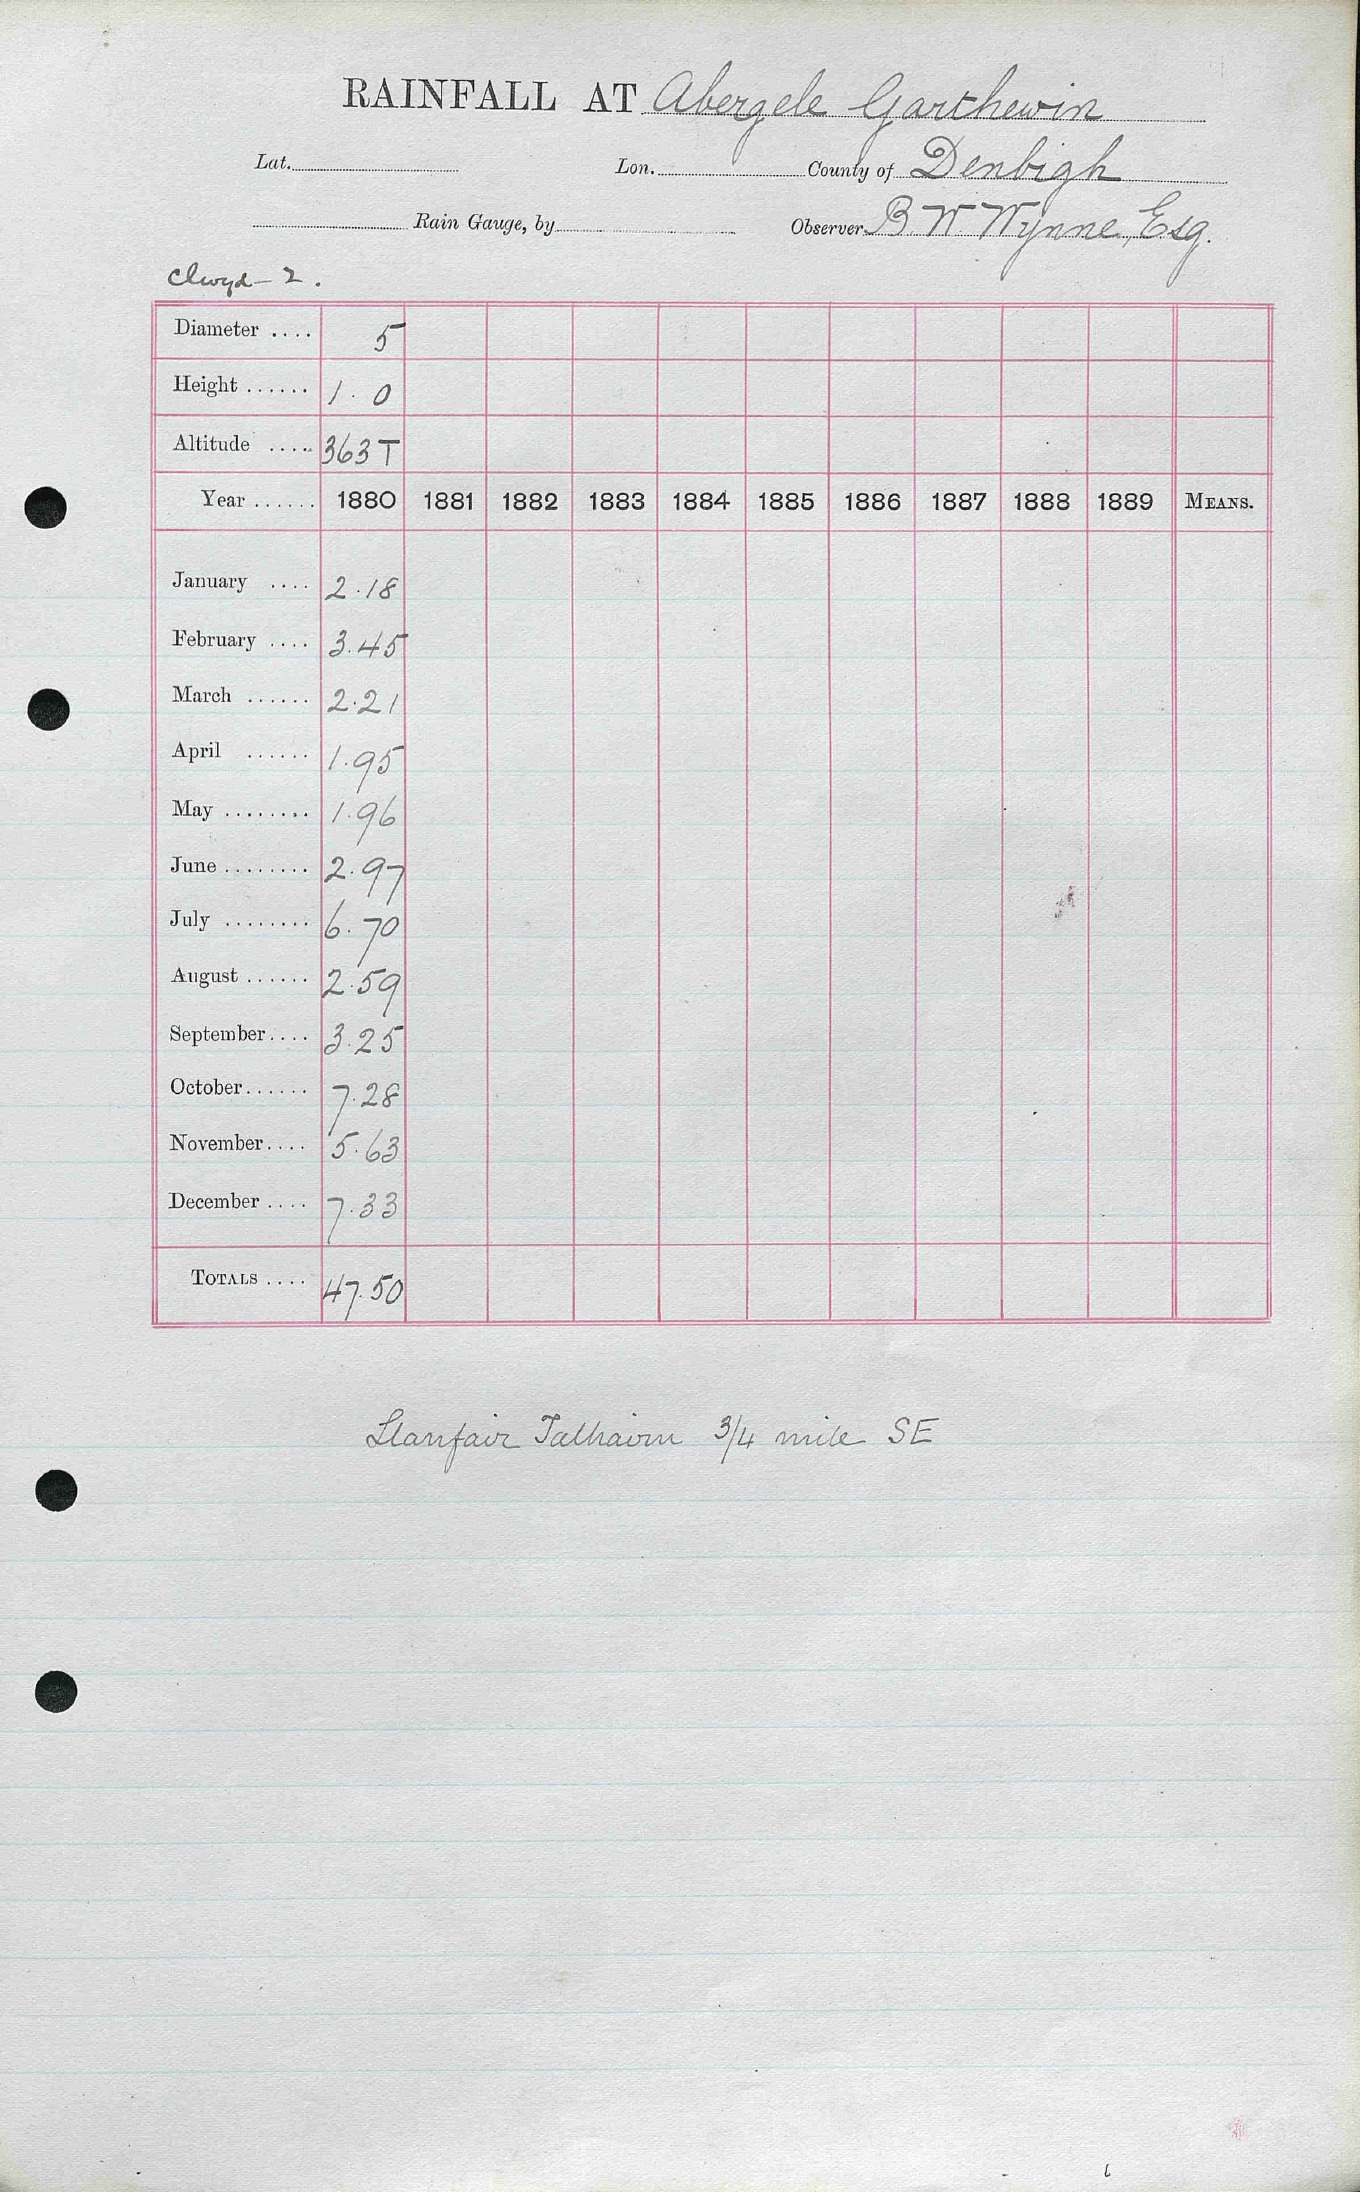 RAINFALL AT Abergele Garthewin
Lat. Lon. County of Denbigh
Rain Gauge, by Observer B. W. Wynne, Esq.
Clwyd-2.
Diameter .... 5
Height ...... 1. 0
Altitude .... 363 T
Year ...... 1880 1881 1882 1883 1884 1885 1886 1887 1888 1889 MEANS.
January .... 2.18
February .... 3.45
March ...... 2.21
April ...... 1.95
May ........ 1.96
June ........ 2.97
July ........ 6.70
August ...... 2.59
September.... 3.25
October...... 7.28
November.... 5.63
December .... 7.33
TOTALS .... 47.50
Llanfair Talhairn 3/4 mile SE